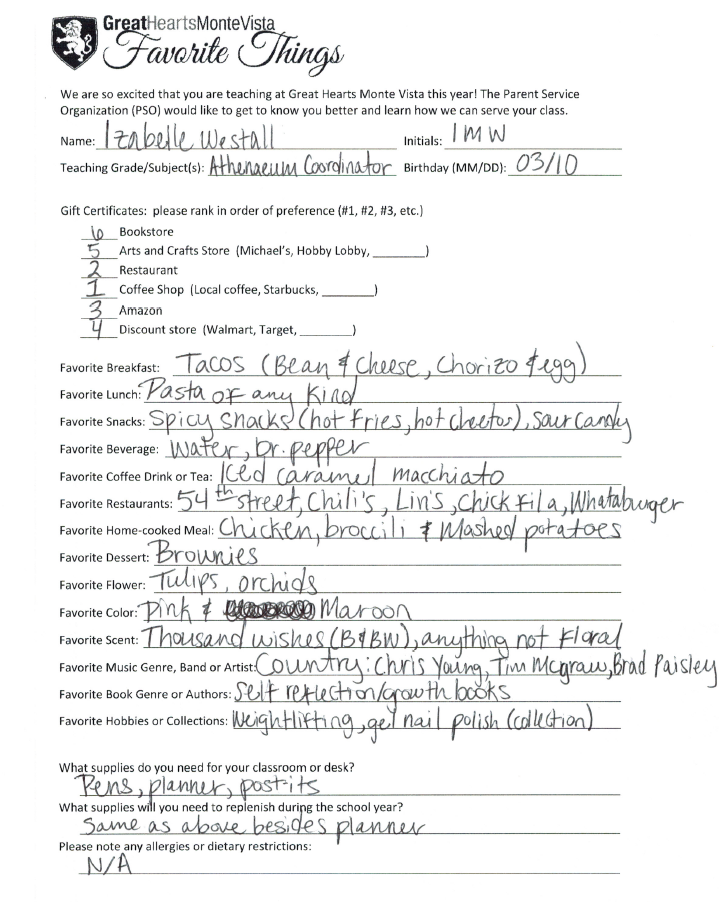 GreatHeartsMonteVista
Favorite Things
We are so excited that you are teaching at Great Hearts Monte Vista this year! The Parent Service
Organization (PSO) would like to get to know you better and learn how we can serve your class.
Name: Izabelle Westall Initials: IMW
Teaching Grade/Subject(s): Athenaeum Coordinator Birthday (MM/DD): 03/10
Gift Certificates: please rank in order of preference (#1, #2, #3, etc.)
6 Bookstore
5 Arts and Crafts Store (Michael's, Hobby Lobby, ________)
2 Restaurant
1 Coffee Shop (Local coffee, Starbucks, ________)
3 Amazon
4 Discount store (Walmart, Target, ________)
Favorite Breakfast: Tacos (Bean & Cheese, Chorizo & egg)
Favorite Lunch: Pasta of any kind
Favorite Snacks: Spicy snacks (hot fries, hot cheetos), Sour Candy
Favorite Beverage: Water, Dr. pepper
Favorite Coffee Drink or Tea: Iced caramel macchiato
Favorite Restaurants: 54th street, Chili's, Lin's, Chick fil a, Whataburger
Favorite Home-cooked Meal: Chicken, broccili & Mashed potatoes
Favorite Dessert: Brownies
Favorite Flower: Tulips, orchids
Favorite Color: Pink & Maroon
Favorite Scent: Thousand wishes (B&BW), anything not Floral
Favorite Music Genre, Band or Artist: Country: Chris Young, Tim Mcgraw, Brad Paisley
Favorite Book Genre or Authors: Self reflection/growth books
Favorite Hobbies or Collections: Weightlifting, gel nail polish (collection)
What supplies do you need for your classroom or desk?
Pens, planner, post-its
What supplies will you need to replenish during the school year?
Same as above besides planner
Please note any allergies or dietary restrictions:
N/A